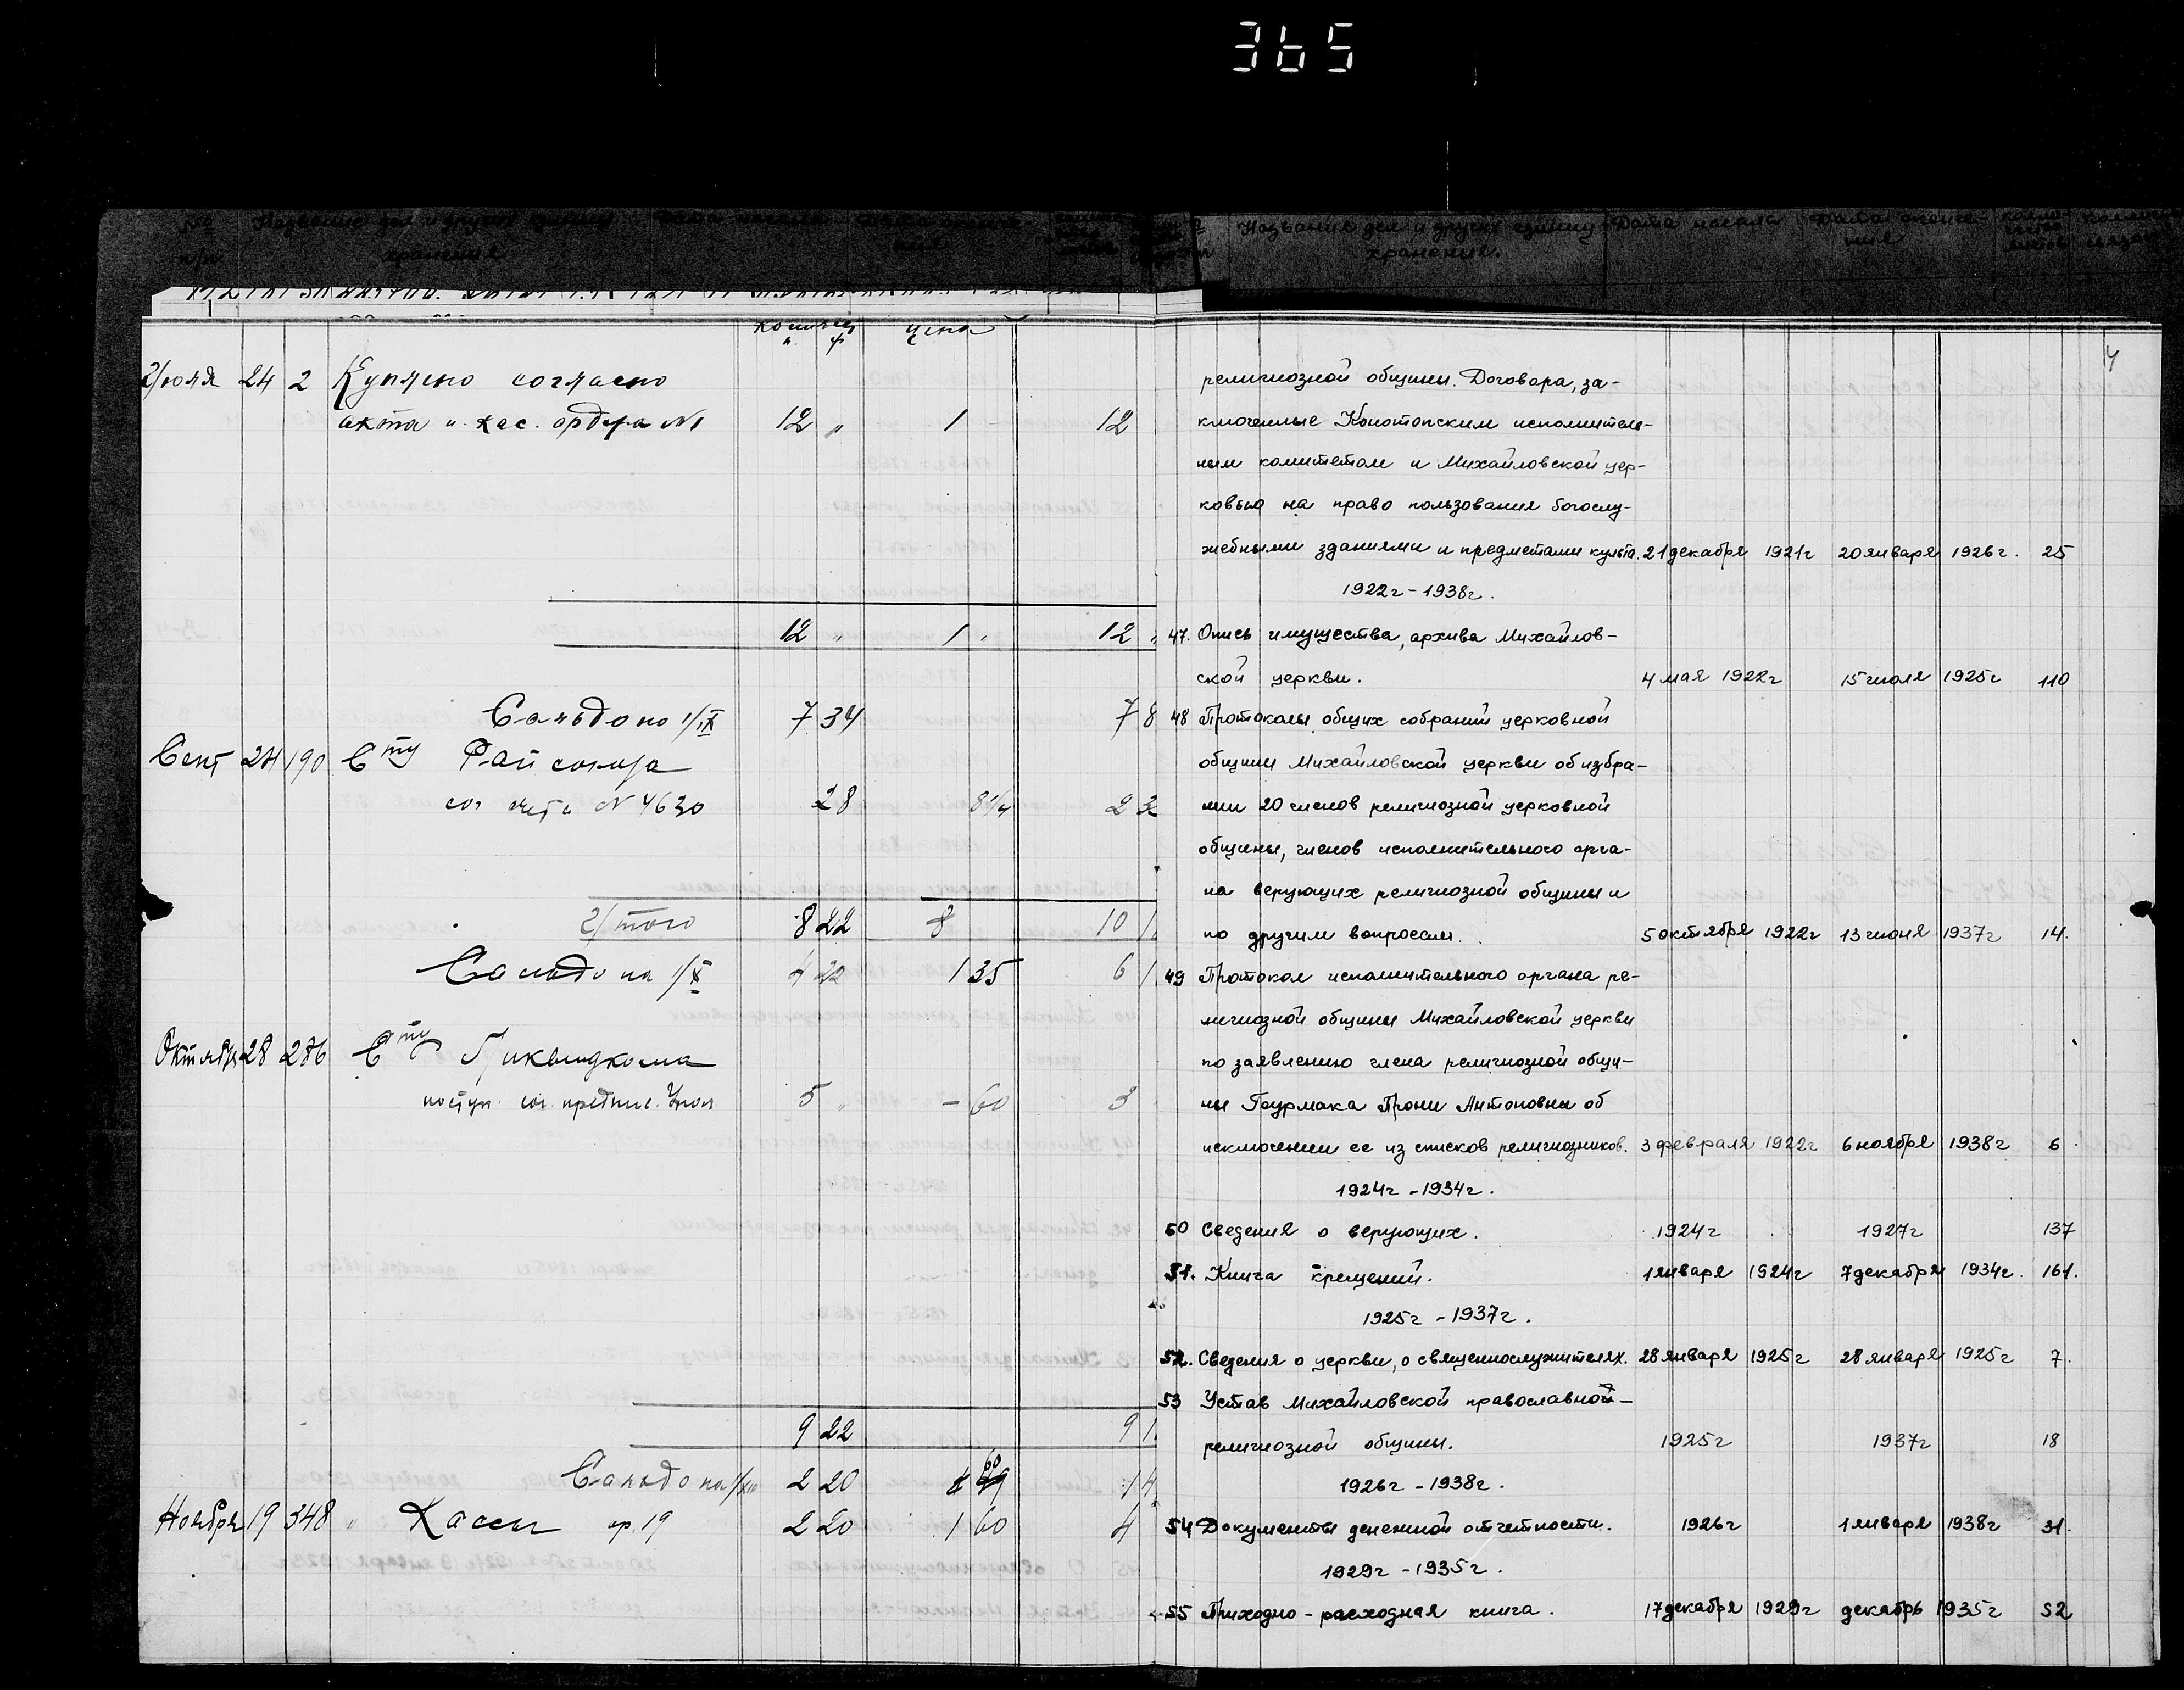 365
№ п/п Название дел и других единиц хранения Дата начала
Название дел и других единиц хранения. Дата начала Дата оконча-ния
цена
Июля 24 2 Куплено согласно
акта и кас. ордера №1 12 " 1 12
12 " 1 12
Сальдо на 1/IX 7 34 7 8
Сент 24 190 Сту Райсоюза
сог счета № 4630 28 8 1/4 2 32
Итого 8 22 8 10 1
Сальдо на 1/X 4 22 1 35 6 1
Октября 28 286 Сту Ликвидкома
поступ. сог. 5 " - 60 3
9 22 9 1
Сальдо на 2 20 60 4
Ноября 19 348 " Кассы ор. 19 2 20 1 60 4
4
религиозной общины. Договора, за-
ключенные Конотопским исполнитель-
ным комитетом и Михайловской цер-
ковью на право пользования богослу-
жебными зданиями и предметами культа. 21 декабря 1921г 20 января 1926г. 25
1922г - 1938г.
47. Опись имущества, архива Михайлов-
ской церкви. 4 мая 1922г 15 июля 1925г 110
48 Протоколы общих собраний церковной
общины Михайловской церкви об избра-
нии 20 членов религиозной церковной
общины, членов исполнительного орга-
на верующих религиозной общины и
по другим вопросам. 5 октября 1922г 13 июня 1937г 14.
49 Протокол исполнительного органа ре-
лигиозной общины Михайловской церкви
по заявлению члена религиозной общи-
ны Гаурмака Прони Антоновны об
исключении ее из списков религиозников. 3 февраля 1922г 6 ноября 1938г 6
1924г - 1934г.
50 Сведения о верующих. 1924г 1927г 137
51. Книга крещений. 1 января 1924г 7 декабря 1934г. 161.
1925г - 1937г.
52. Сведения о церкви, о священнослужителях. 28 января 1925г 28 января 1925г 7.
53 Устав Михайловской православной-
религиозной общины. 1925г 1937г 18
1926г - 1938г.
54 Документы денежной отчетности. 1926г 1 января 1938г 31.
1929г - 1935г.
55 Приходно - расходная книга. 17 декабря 1929г декабрь 1935г 52